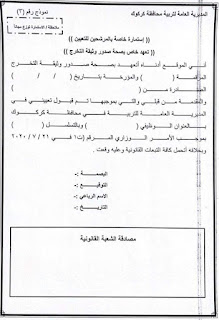 المديرية العامة لتربية محافظة كركوك
نموذج رقم (٣)
ملاحظة / الاستمارة توزع مجاناً
(( إستمارة خاصة بالمرشحين للتعيين ))
(( تعهد خاص بصحة صدور وثيقة التخرج ))
أني الموقع أدناه أتعهد بصحة صدور وثيقة التخرج
المرقمة ( ) والمؤرخة بتاريخ / /
الصادرة من ( )
والمقدمة من قبلي والتي بموجبها تم قبول تعييني في
المديرية العامة للتربية في محافظة كركوك
بالعنوان الوظيفي ( ) وبالتسلسل ( )
بموجب الأمر الوزاري المرقم (ت١) في ٢٠٢٠ / ٧ / ٢١
وبخلافه أتحمل كافة التبعات القانونية وعليه وقعت .
البصمة :-
التوقيع :-
الاسم الرباعي :-
التاريخ :-
مصادقة الشعبة القانونية